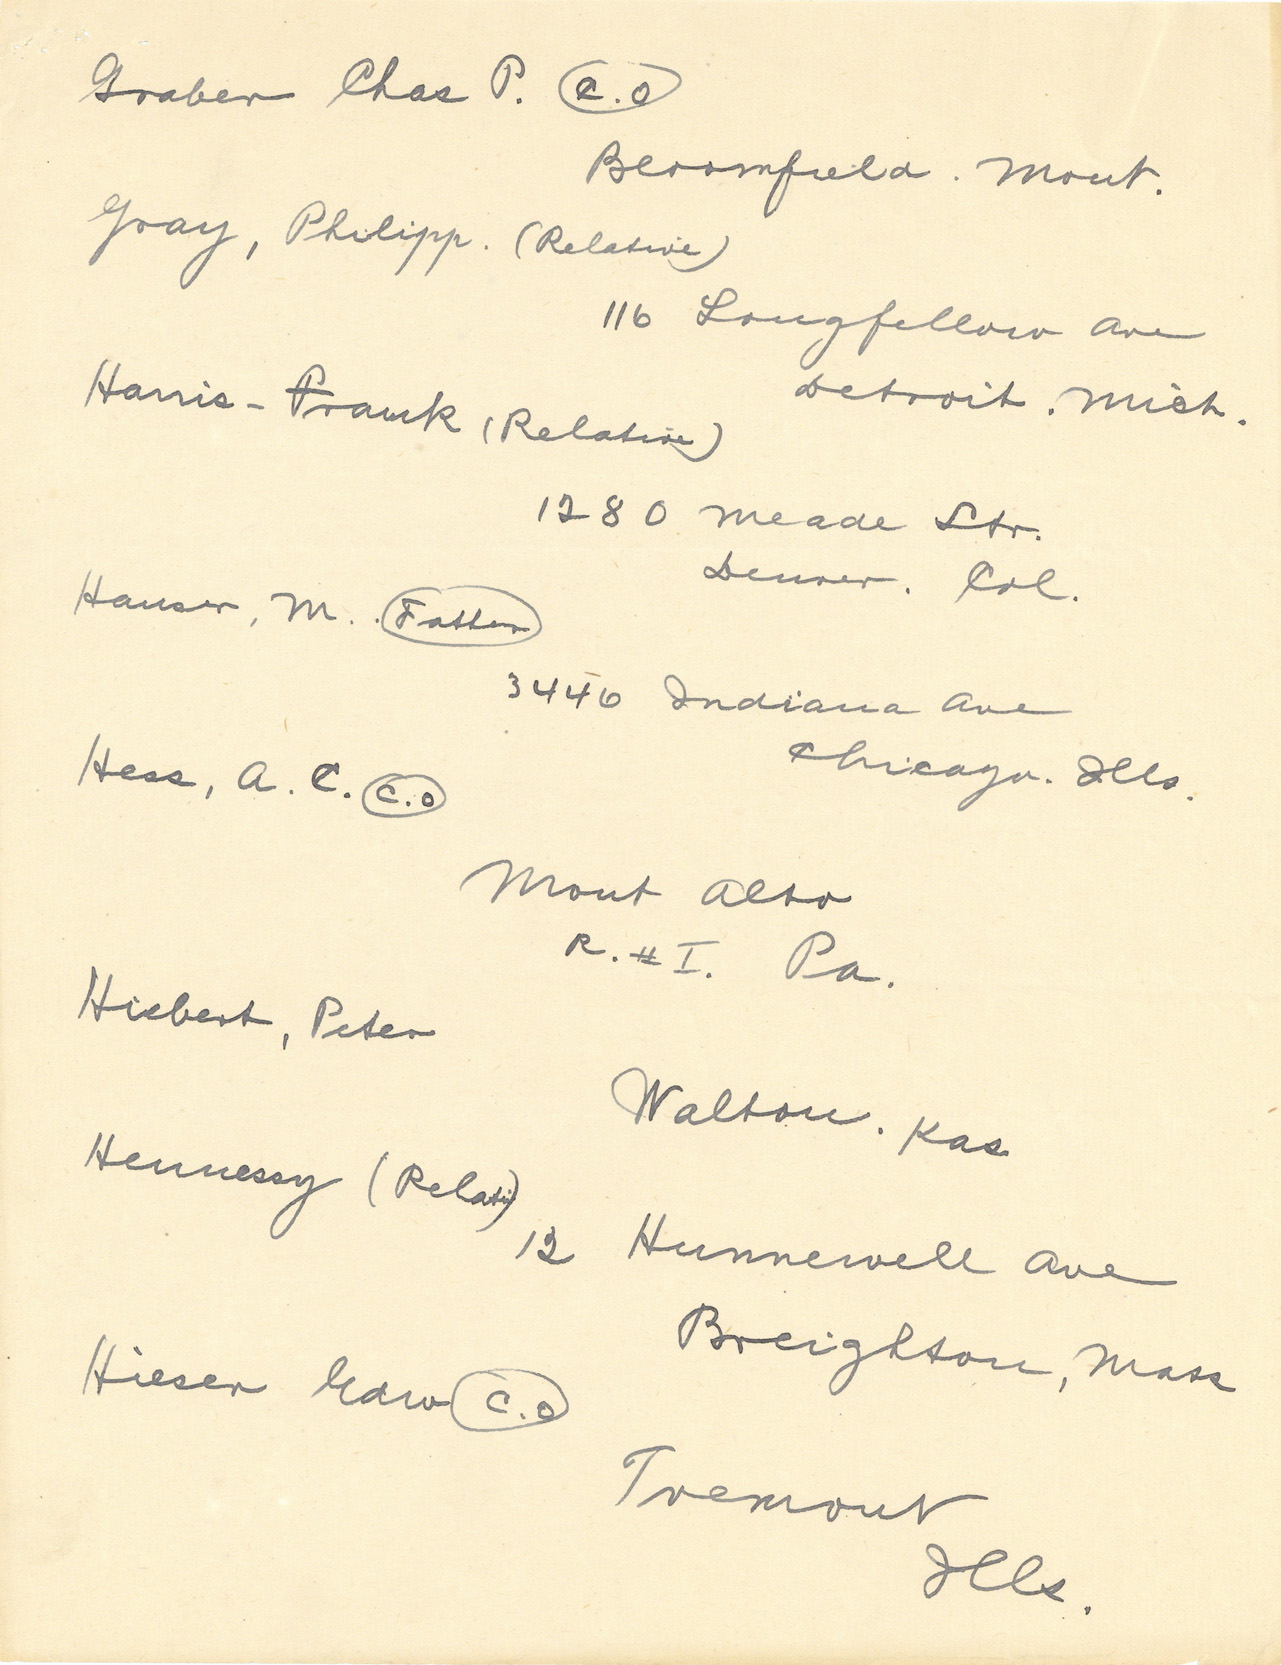 Graber Chas P. C.O
Bloomfield. Mont.
Gray, Philipp. (Relative)
116 Longfellow Ave
Detroit. Mich.
Harris - Frank (Relative)
1280 Meade Str.
Denver. Col.
Hauser, M. Father
3446 Indiana Ave
Chicago. Ills.
Hess, A. C. C.O
Mont Alto
R. # I. Pa.
Hiebert, Peter
Walton. Kas
Hennessy (Relativ)
12 Hunnewell Ave
Breighton, Mass
Hieser Edw C.O
Tremont
Ills.